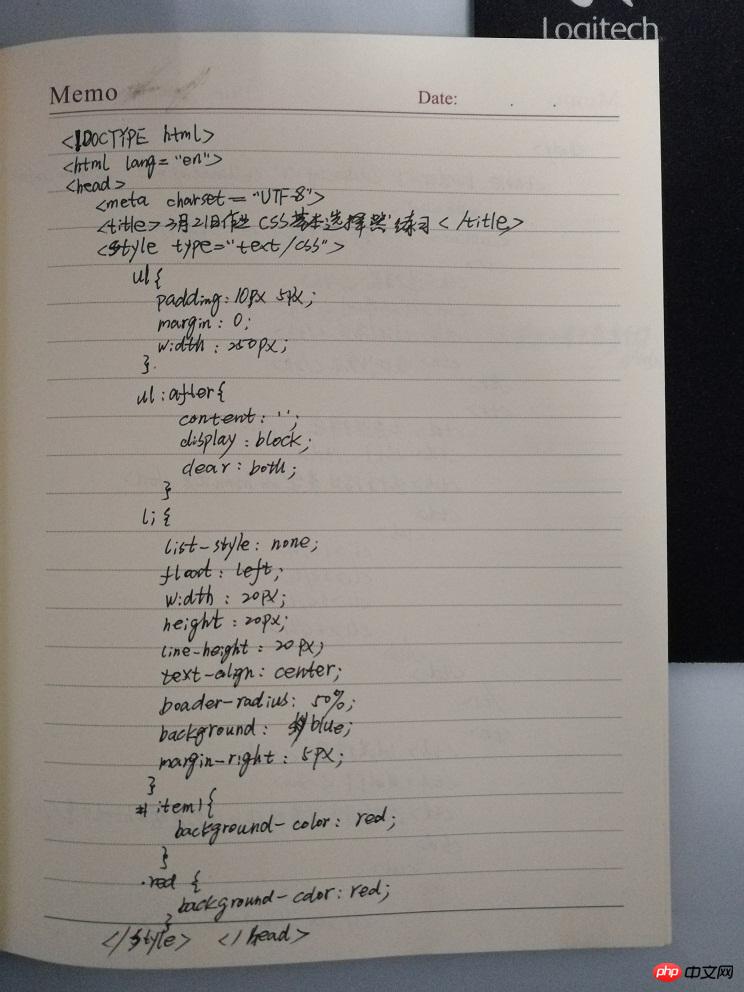 Logitech
Memo
Date: . .
<!DOCTYPE html>
<html lang="en">
<head>
<meta charset="UTF-8">
<title>3月21日作业 CSS基本选择器 练习</title>
<style type="text/css">
ul{
padding:10px 5px;
margin: 0;
width: 250px;
}
ul:after{
content: '';
display: block;
clear: both;
}
li{
list-style: none;
float: left;
width: 20px;
height: 20px;
line-height: 20px;
text-align: center;
boader-radius: 50%;
background: blue;
margin-right: 5px;
}
#item1{
background-color: red;
}
.red {
background-color: red;
}
</style> </head>
php 中文网